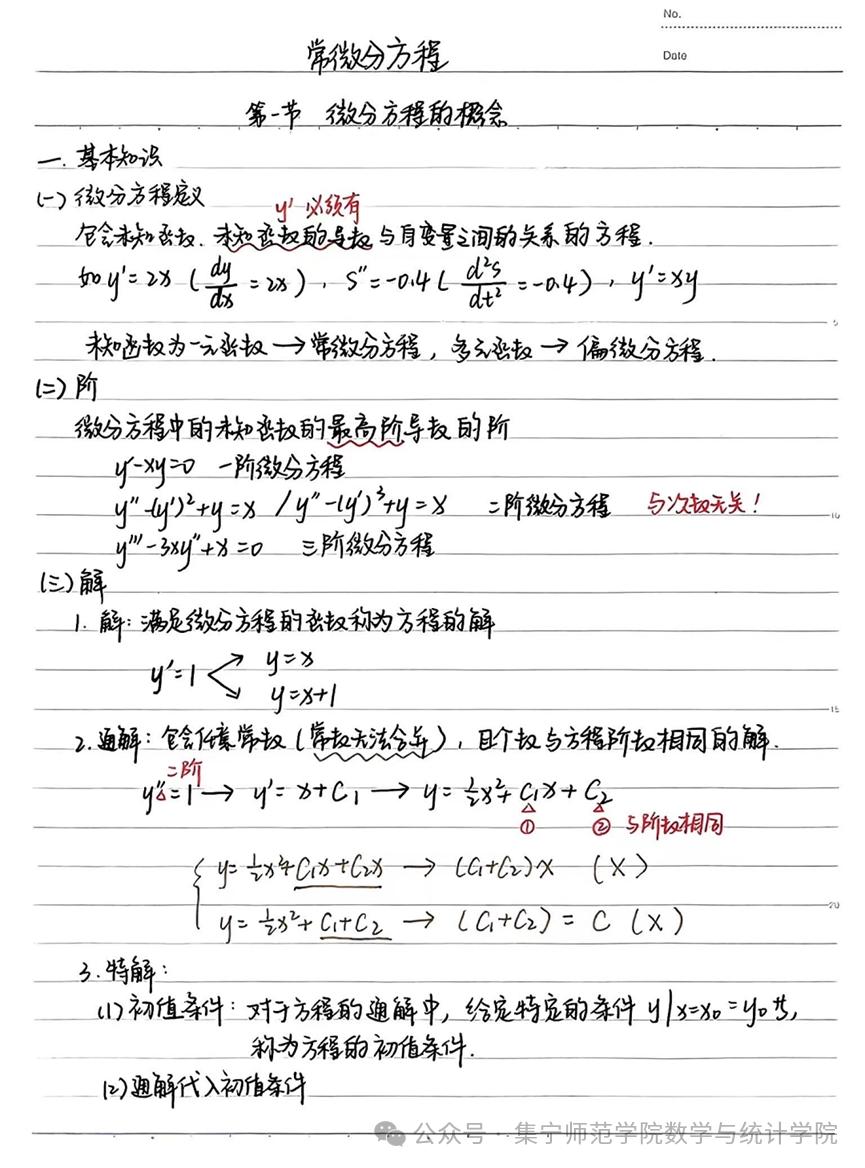 No.
Date
常微分方程
第一节 微分方程的概念
一. 基本知识
(一) 微分方程定义
y' 必须有
包含未知函数. 未知函数的导数与自变量之间的关系的方程.
如 y'=2x (dy/dx=2x), S''=-0.4 (d²s/dt²=-0.4), y'=xy
未知函数为一元函数→常微分方程, 多元函数→偏微分方程.
(二) 阶
微分方程中的未知函数的最高阶导数的阶
y'-xy=0 一阶微分方程
y''-(y')²+y=x / y''-(y')³+y=x 二阶微分方程 与次数无关!
y'''-3xy''+x=0 三阶微分方程
(三) 解
1. 解: 满足微分方程的函数称为方程的解
y'=1 y=x
y=x+1
2. 通解: 包含任意常数 (常数无法合并), 且个数与方程阶数相同的解.
二阶
y''=1 → y'=x+C₁ → y=½x²+C₁x+C₂
① ② 与阶数相同
y=½x²+C₁x+C₂x → (C₁+C₂)x (X)
y=½x²+C₁+C₂ → (C₁+C₂)=C (X)
3. 特解:
(1) 初值条件: 对于方程的通解中, 给定特定的条件 y|x=x₀=y₀等,
称为方程的初值条件.
(2) 通解代入初值条件
公众号·集宁师范学院数学与统计学院
5
10
15
20